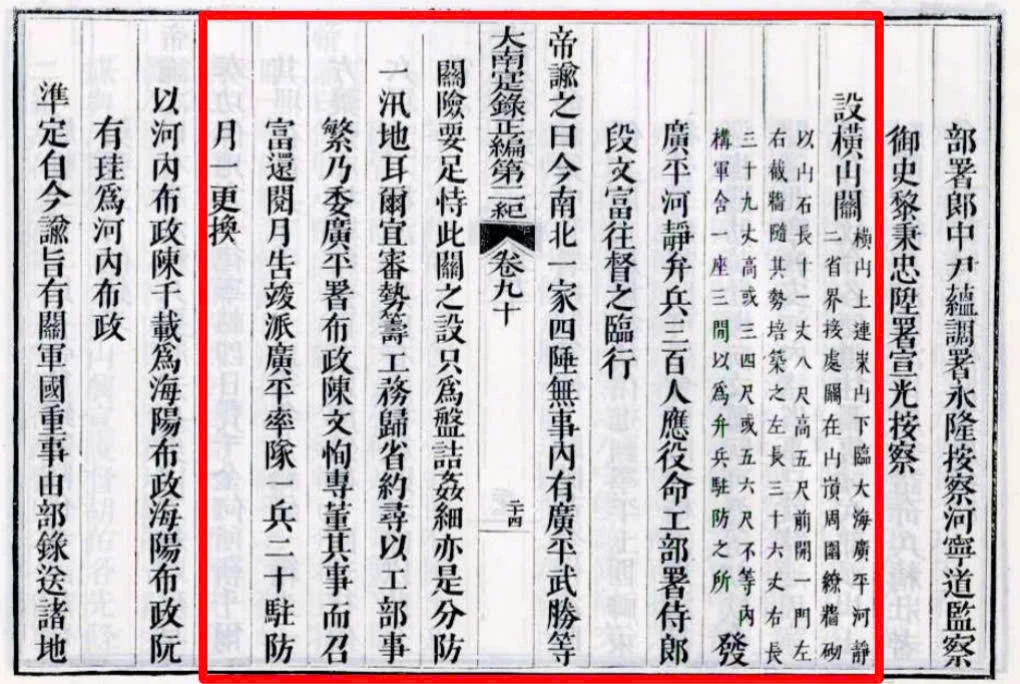 部署郎中尹蘊調署永隆按察河寧道監察
御史黎秉忠陞署宣光按察
設橫山關
橫山上連峩山下臨大海廣平河靜
二省界接處關在山頂周圍繚牆砌
以山石長十一丈八尺高五尺前開一門左
右截牆隨其勢培築之左長三十六丈右長
三十九丈高或三四尺或五六尺不等內
構軍舍一座三間以爲弁兵駐防之所
發
廣平河靜弁兵三百人應役命工部署侍郎
段文富往督之臨行
帝諭之曰今南北一家四陲無事內有廣平武勝等
大南寔錄正編第二紀
卷九十
二十四
關險要足恃此關之設只爲盤詰姦細亦是分防
一汛地耳爾宜審勢籌工務歸省約尋以工部事
繁乃委廣平署布政陳文恂專董其事而召
富還閱月告竣派廣平率隊一兵二十駐防
月一更換
以河內布政陳千載爲海陽布政海陽布政阮
有珪爲河內布政
準定自今諭旨有關軍國重事由部錄送諸地